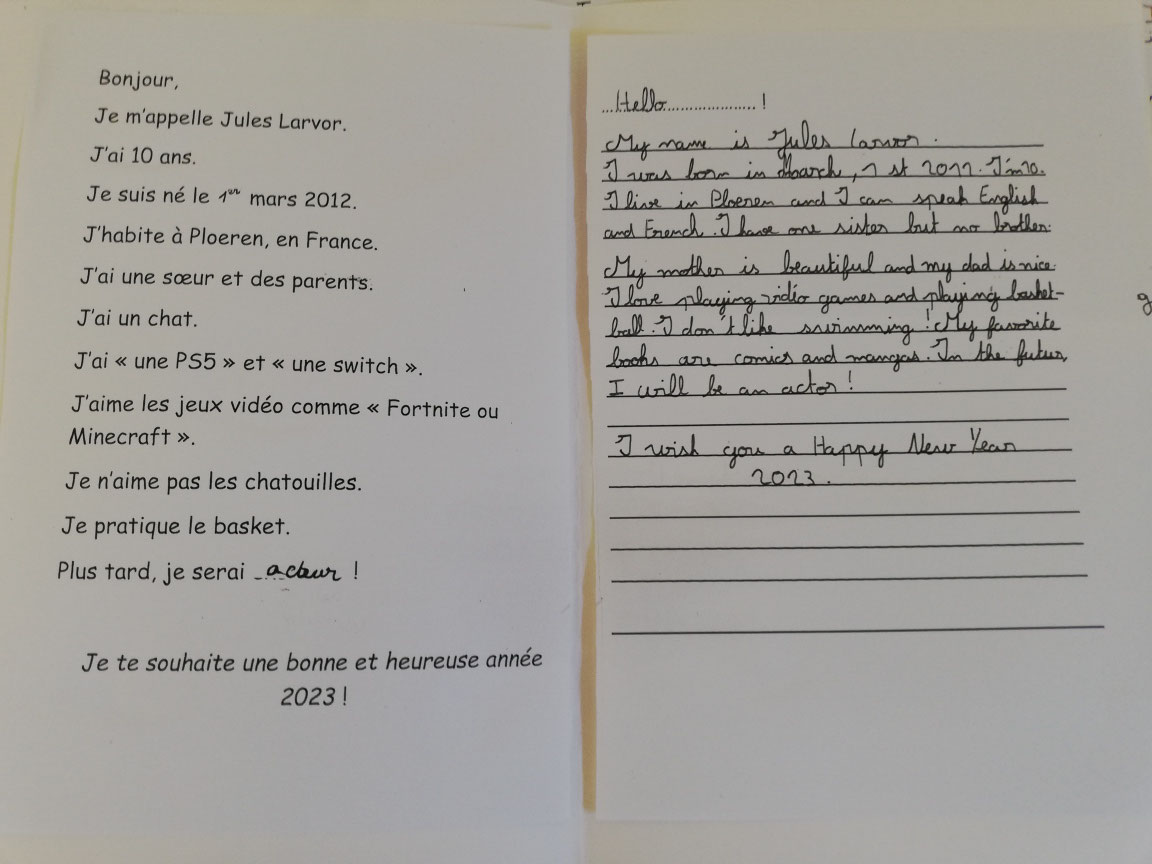 Bonjour,
Je m'appelle Jules Larvor.
J'ai 10 ans.
Je suis né le 1er mars 2012.
J'habite à Ploeren, en France.
J'ai une sœur et des parents.
J'ai un chat.
J'ai « une PS5 » et « une switch ».
J'aime les jeux vidéo comme « Fortnite ou
Minecraft ».
Je n'aime pas les chatouilles.
Je pratique le basket.
Plus tard, je serai acteur !
Je te souhaite une bonne et heureuse année
2023 !
...Hello.................... !
My name is Jules Larvor.
I was born in March, 1 st 2012. I'm 10.
I live in Ploeren and I can speak English
and French. I have one sister but no brother.
My mother is beautiful and my dad is nice.
I love playing vidéo games and playing basket-
ball. I don't like swimming! My favorite
books are comics and mangas. In the futur,
I will be an actor !
I wish you a Happy New Year
2023.